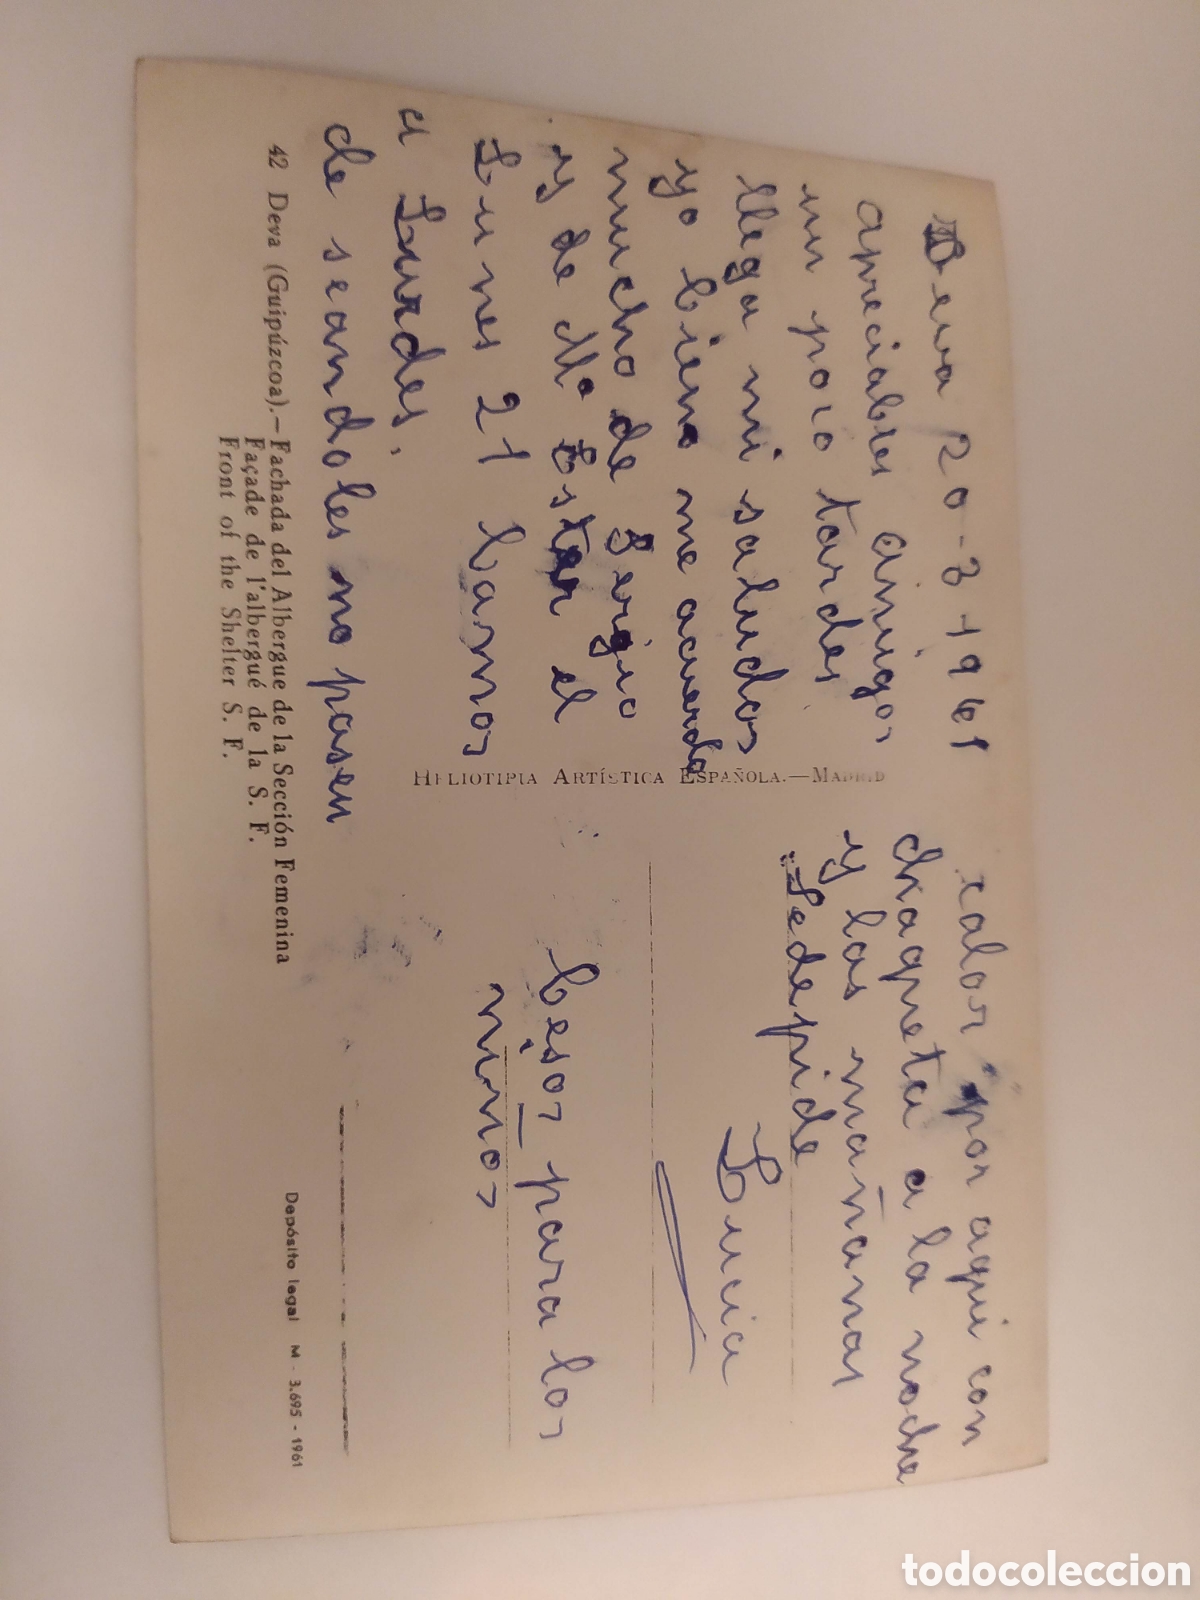 Deva 20-8-1961
apreciables amigos
un poco tardes
llega mi saludos
yo biena me acuerdo
mucho de Sergio
y de Mª Ester el
Lunes 21 bamos
a Lurdes,
de seandoles no pasen
calor por aqui con
chaqueta a la noche
y las mañanas
Sedepide
Lucia
besos para los
ninos
HELIOTIPIA ARTÍSTICA ESPAÑOLA.—MADRID
42 Deva (Guipúzcoa).—Fachada del Albergue de la Sección Femenina
Façade de l'albergué de la S. F.
Front of the Shelter S. F.
Depósito legal M - 3.695 - 1961
todocoleccion